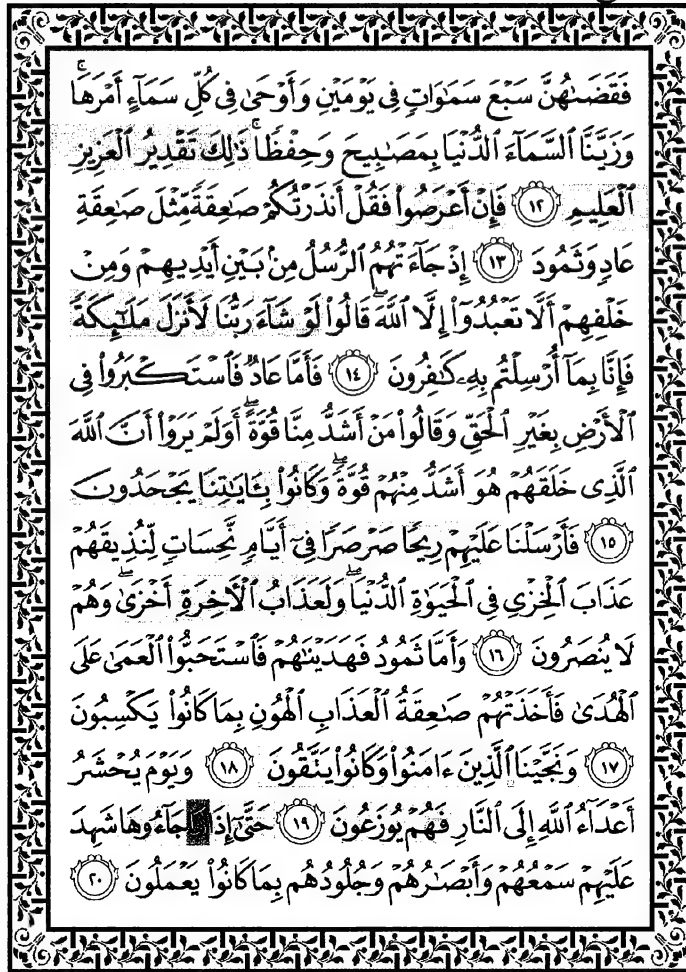 فَقَضَىٰهُنَّ سَبْعَ سَمَوَاتٍ فِى يَوْمَيْنِ وَأَوْحَىٰ فِى كُلِّ سَمَآءٍ أَمْرَهَا ۚ
وَزَيَّنَّا ٱلسَّمَآءَ ٱلدُّنْيَا بِمَصَٰبِيحَ وَحِفْظًا ۚ ذَٰلِكَ تَقْدِيرُ ٱلْعَزِيزِ
ٱلْعَلِيمِ ١٢ فَإِنْ أَعْرَضُوا۟ فَقُلْ أَنذَرْتُكُمْ صَٰعِقَةً مِّثْلَ صَٰعِقَةِ
عَادٍ وَثَمُودَ ١٣ إِذْ جَآءَتْهُمُ ٱلرُّسُلُ مِنۢ بَيْنِ أَيْدِيهِمْ وَمِنْ
خَلْفِهِمْ أَلَّا تَعْبُدُوٓا۟ إِلَّا ٱللَّهَ ۖ قَالُوا۟ لَوْ شَآءَ رَبُّنَا لَأَنزَلَ مَلَٰٓئِكَةً
فَإِنَّا بِمَآ أُرْسِلْتُم بِهِۦ كَٰفِرُونَ ١٤ فَأَمَّا عَادٌ فَٱسْتَكْبَرُوا۟ فِى
ٱلْأَرْضِ بِغَيْرِ ٱلْحَقِّ وَقَالُوا۟ مَنْ أَشَدُّ مِنَّا قُوَّةً ۖ أَوَلَمْ يَرَوْا۟ أَنَّ ٱللَّهَ
ٱلَّذِى خَلَقَهُمْ هُوَ أَشَدُّ مِنْهُمْ قُوَّةً ۖ وَكَانُوا۟ بِـَٔايَٰتِنَا يَجْحَدُونَ
١٥ فَأَرْسَلْنَا عَلَيْهِمْ رِيحًا صَرْصَرًا فِىٓ أَيَّامٍ نَّحِسَاتٍ لِّنُذِيقَهُمْ
عَذَابَ ٱلْخِزْىِ فِى ٱلْحَيَوٰةِ ٱلدُّنْيَا ۖ وَلَعَذَابُ ٱلْـَٔاخِرَةِ أَخْزَىٰ ۖ وَهُمْ
لَا يُنصَرُونَ ١٦ وَأَمَّا ثَمُودُ فَهَدَيْنَٰهُمْ فَٱسْتَحَبُّوا۟ ٱلْعَمَىٰ عَلَى
ٱلْهُدَىٰ فَأَخَذَتْهُمْ صَٰعِقَةُ ٱلْعَذَابِ ٱلْهُونِ بِمَا كَانُوا۟ يَكْسِبُونَ
١٧ وَنَجَّيْنَا ٱلَّذِينَ ءَامَنُوا۟ وَكَانُوا۟ يَتَّقُونَ ١٨ وَيَوْمَ يُحْشَرُ
أَعْدَآءُ ٱللَّهِ إِلَى ٱلنَّارِ فَهُمْ يُوزَعُونَ ١٩ حَتَّىٰٓ إِذَا جَآءُوهَا شَهِدَ
عَلَيْهِمْ سَمْعُهُمْ وَأَبْصَٰرُهُمْ وَجُلُودُهُم بِمَا كَانُوا۟ يَعْمَلُونَ ٢٠